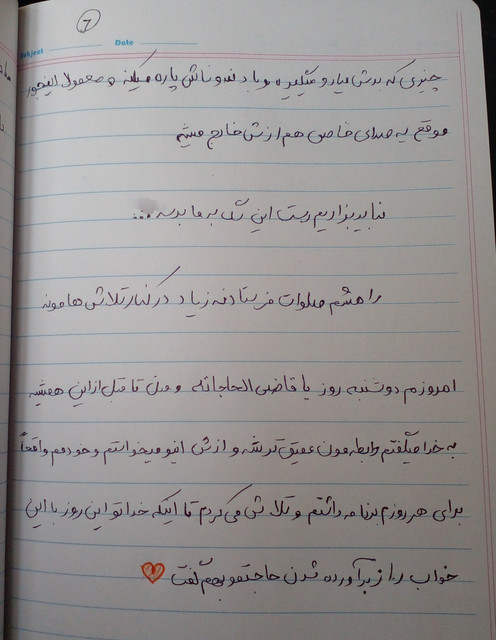 7
Subject
Date
چیزی که بدش میاد و میگیره و با دندوناش پاره میکنه و معمولا اینجور
موقع یه صدای خاصی هم ازش خارج میشه
نباید بزاریم دست این سگ به ما برسه ...
راهشم صلوات فرستادنه زیاد در کنار تلاش هامونه
امروزم دوشنبه روز یا قاضی الحاجاته و من تا قبل از این همیشه
به خدا میگفتم رابطه مون عمیق تر شه و ازش اینو میخواستم و خودمم واقعاً
برای هر روزم برنامه داشتم و تلاش می کردم تا اینکه خدا تو این روز با این
خواب راز برآورده شدن حاجتمو بهم گفت